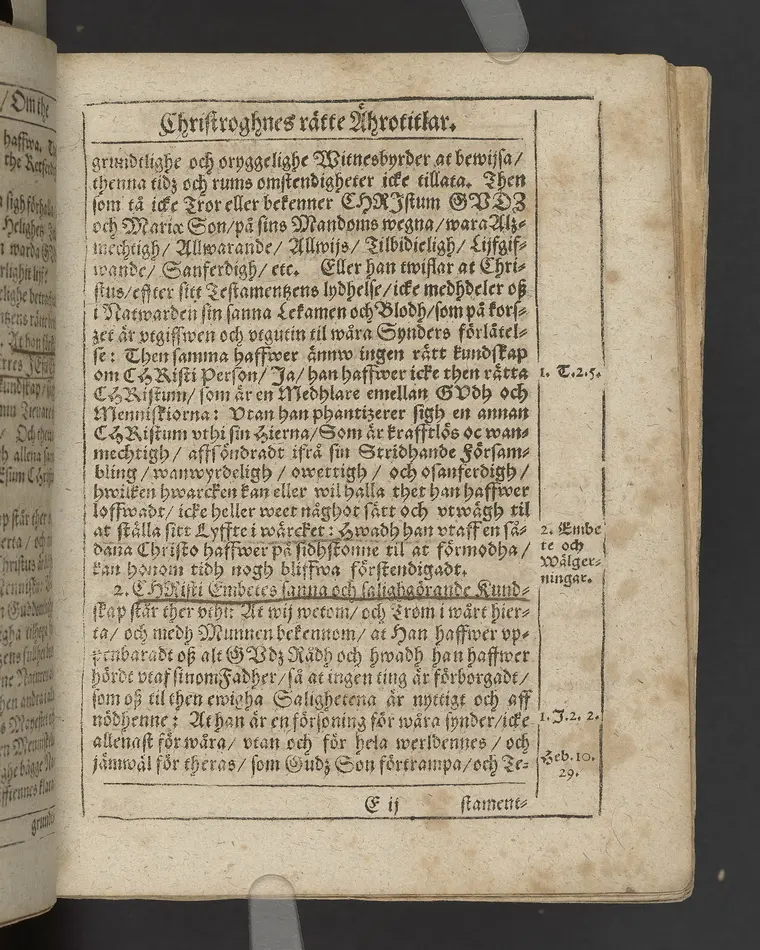 / Om the
haffwa.
Christroghnes rätte Ährotitlar.
grundtlighe och oryggelighe Witnesbyrder at bewijsa/
thenna tidz och rums omstendigheter icke tillata. Then
som tå icke Tror eller bekenner CHRJstum GVDZ
och Mariæ Son/på sins Mandoms wegna/ wara Alz-
mechtigh/ Allwarande/ Allwijs/ Tilbidieligh/ Lijfgif-
wande/ Sanferdigh/ etc. Eller han twiflar at Chri-
stus/effter sitt Testamentzens lydhelse/icke medhdeler oß
i Natwarden sin sanna Lekamen och Blodh/som på kors-
zet är vtgiffwen och vtgutin til wåra Synders förlätel-
se: Then samma haffwer ännw ingen rätt kundskap
om CHRisti Person/ Ja/ han haffwer icke then rätta
CHRistum/ som är en Medhlare emellan GVdh och
Menniskiorna: Vtan han phantizerer sigh en annan
CHRistum vthi sin Hierna/Som är krafftlös oc wan-
mechtigh/ affsöndradt ifrå sin Stridhande Försam-
bling/ wanwyrdeligh/ owettigh/ och osanferdigh/
hwilken hwarcken kan eller wil halla thet han haffwer
loffwadt/ icke heller weet någhot sätt och vtwägh til
at ställa sitt Lyffte i wärcket: Hwadh han vtaff en så-
dana Christo haffwer på sidhstonne til at förmodha/
kan honom tidh nogh bliffwa förstendigadt.
2. CHRisti Embetes sanna och salighgörande Kund-
skap står ther vthi: At wij wetom/ och Trom i wårt hier-
ta/ och medh Munnen bekennom/ at Han haffwer vp-
penbaradt oß alt GVdz Rådh och hwadh han haffwer
hördt vtaf sinom Fadher/ så at ingen ting är förborgadt/
som oß til then ewigha Salighetena är nyttigt och aff
nödhenne: At han är en försoning för wåra synder/icke
allenast för wåra/ vtan och för hela werldennes/ och
jämwäl för theras/ som Gudz Son förtrampa/och Te-
E ij stament-
1. T.2.5.
2. Embe
te och
Wälger-
ningar.
1. J.2. 2.
Heb.10.
29.